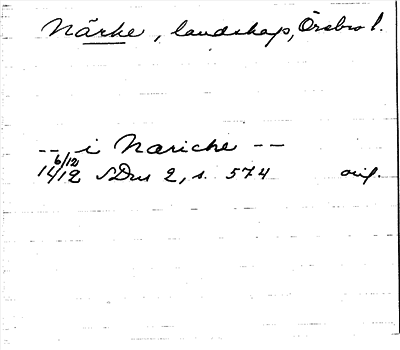 Närke, landskap, Örebro l.
-- i Nariche --
6/12
14/12 SDns 2, s. 574 orig.